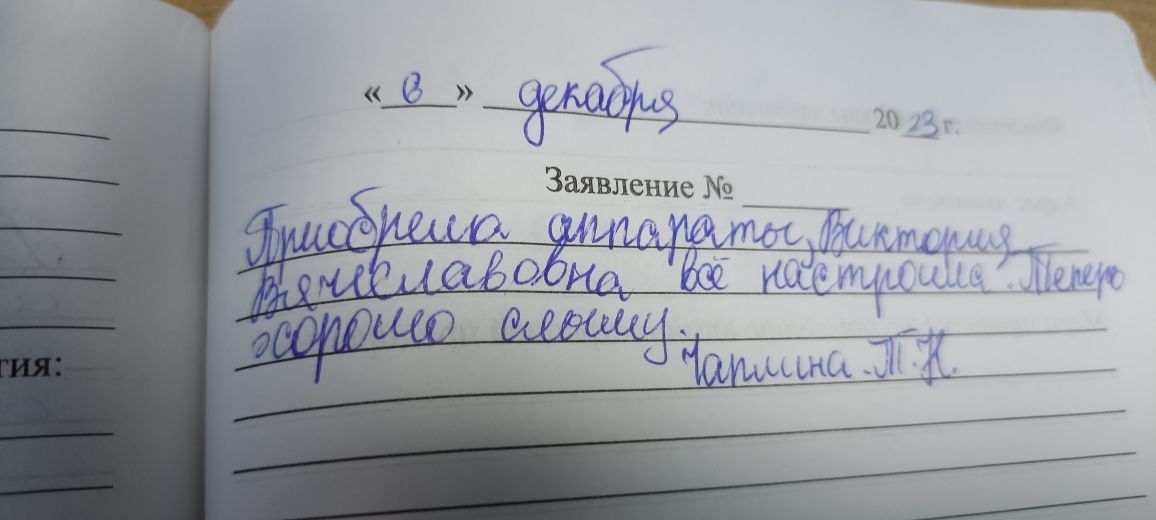 « 6 » декабря 2023 г.
Заявление №
Приобрела аппараты, Виктория
Вячеславовна всё настроила. Теперь
хорошо слышу.
Чаплина. Т. Н.
тия: